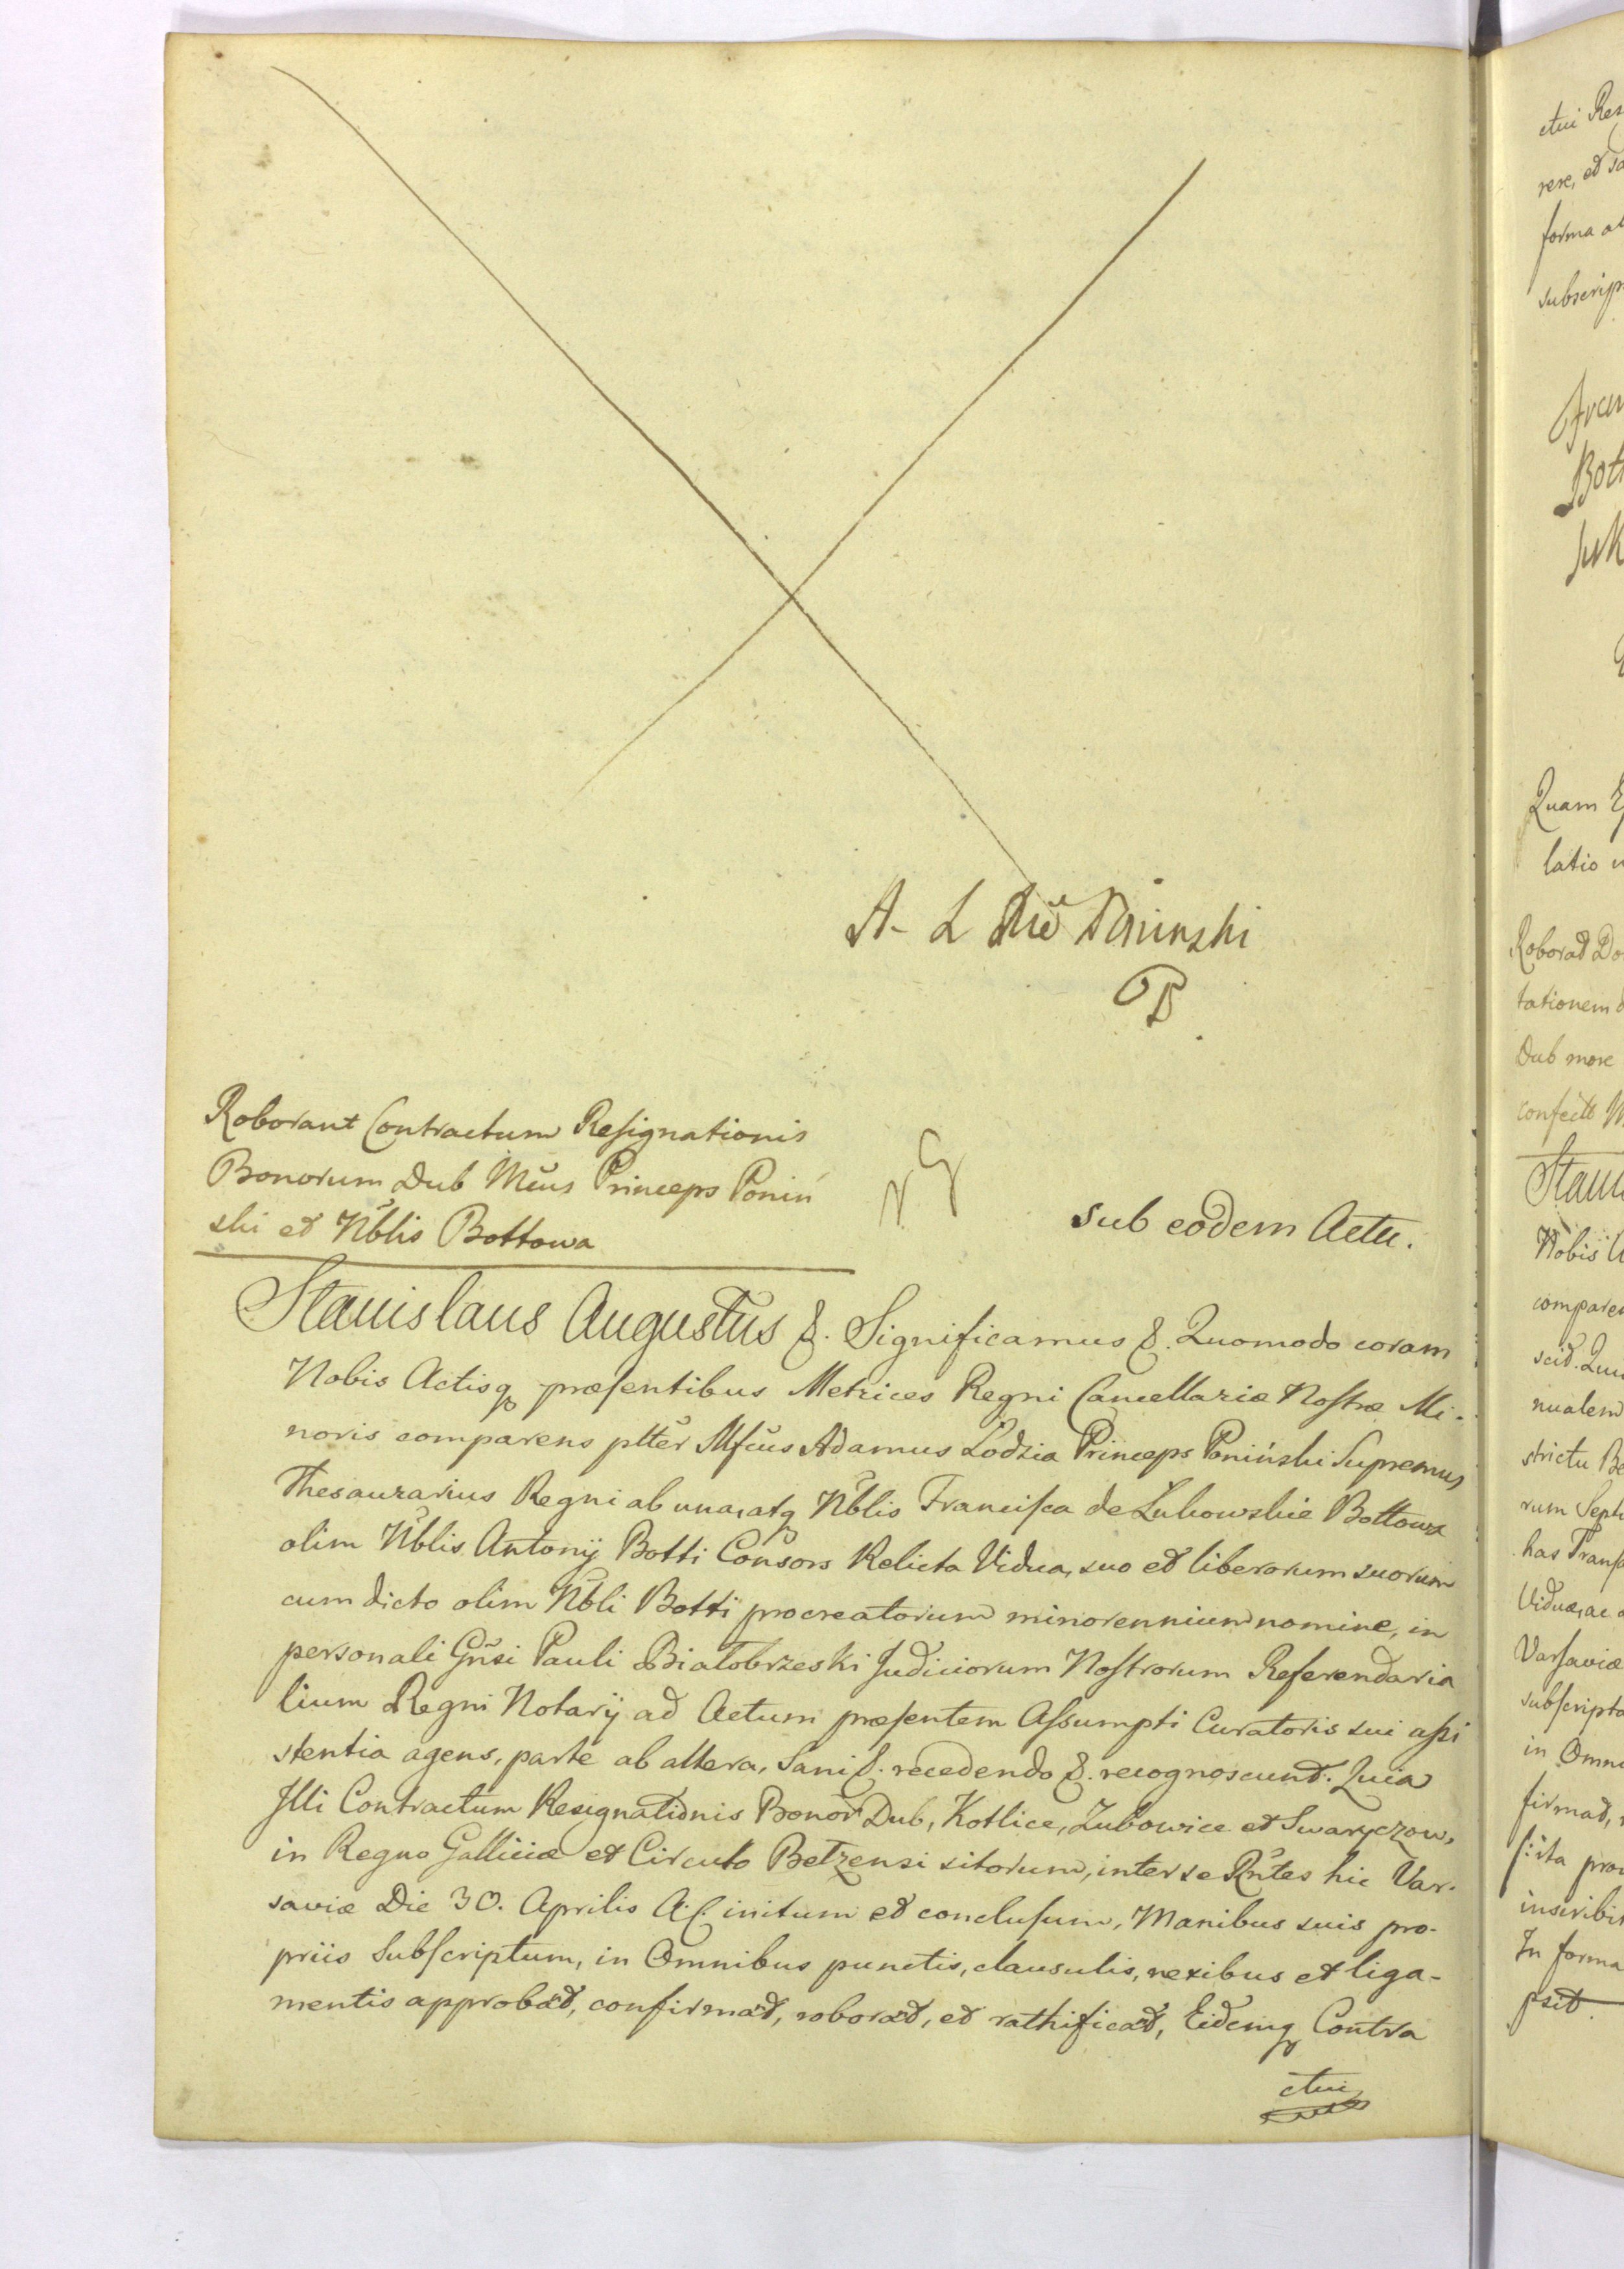 A- L Poninski
Roborant Contractum Resignationis
Bonorum Dub Mcus Princeps Poniń
ski et Nblis Bottowa
sub eodem Actu.
Stanislaus Augustus &. Significamus &. Quomodo coram
Nobis Actisq præsentibus Metrices Regni Cancellariæ Nostræ Mi-
noris comparens plter Mfcus Adamus Lodzia Princeps Poniński Supremus
Thesaurarius Regni ab una, atq Nblis Francisca de Łukowskie Bottowa
olim Nblis Antonij Botti Consors Relicta Vidua, suo et liberorum suorum
cum dicto olim Nbli Botti procreatorum minorennium nomine, in
personali Gnsi Pauli Białobrzeski Judiciorum Nostrorum Referendaria
lium Regni Notarij ad Actum præsentem Assumpti Curatoris sui assi
stentia agens, parte ab altera, sani &. recedendo &. recognoscunt. Quia
Illi Contractum Resignationis Bonor Dub, Kotlice, Zubowice et Swaryczow,
in Regno Galliciæ et Circulo Betzensi sitorum, inter se Rntes hic Var-
saviæ Die 30. Aprilis A. C. initum et conclusum, Manibus suis pro-
priis Subscriptum, in Omnibus punctis, clausulis, nexibus et liga-
mentis approbat, confirmat, roborat, et rathificat, Eidemq Contra
ctui
ctui
rere, et
forma
Quam
latio
Roborat
tationem
Dub more
Nobis
strictu
has
Viduæ, ac
Varsaviæ
in
firmat,
In forma